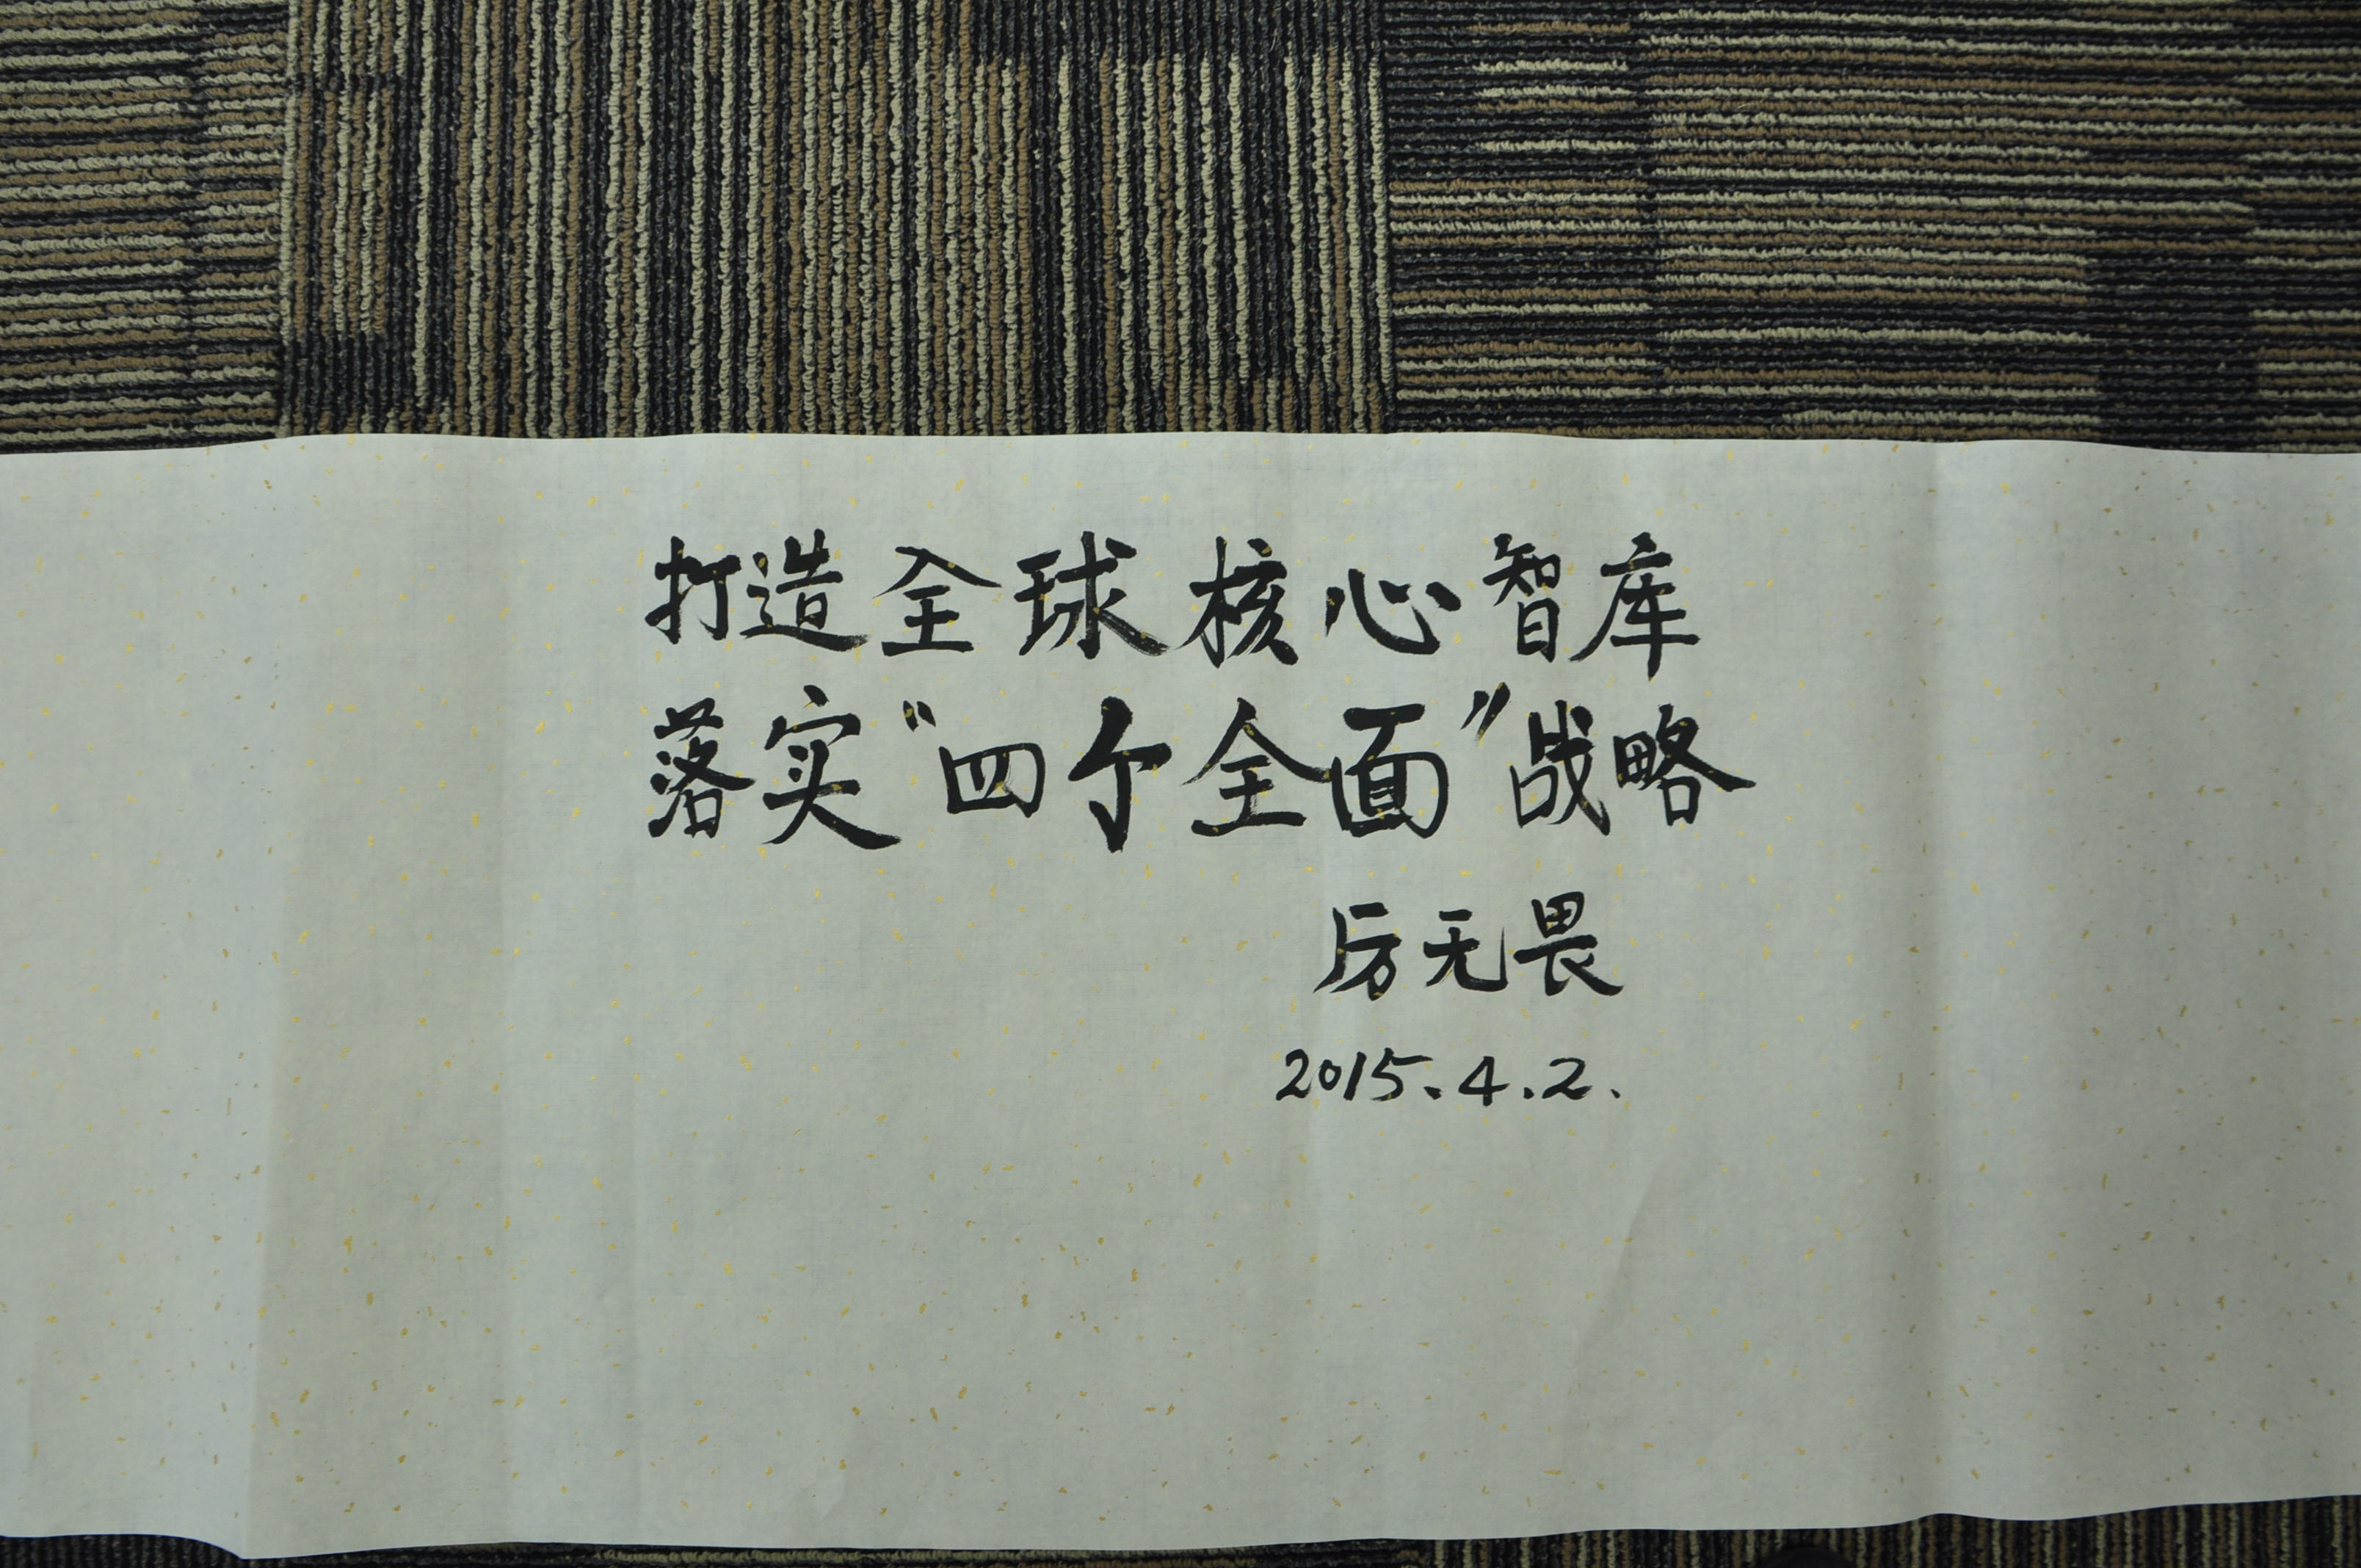 打造全球核心智库
落实“四个全面”战略
厉无畏
2015.4.2.